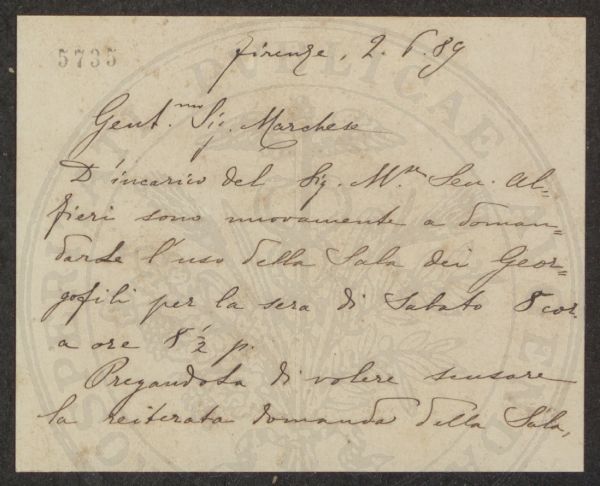 5735
Firenze, 2. 6. 89
Gent.mo Sig. Marchese
D'incarico del Sig. M.se Sen. Al=
fieri sono nuovamente a doman=
darLe l'uso della Sala dei Geor=
gofili per la sera di Sabato 8 cor.
a ore 8 1/2 p.
Pregandola di volere scusare
la reiterata domanda della Sala,